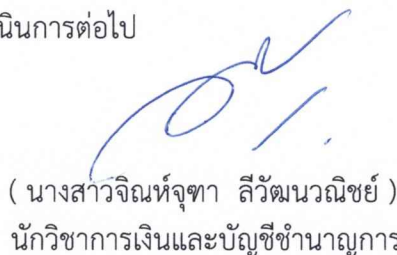 นินการต่อไป
( นางสาวจิณห์จุฑา ลีวัฒนวณิชย์ )
นักวิชาการเงินและบัญชีชำนาญการ